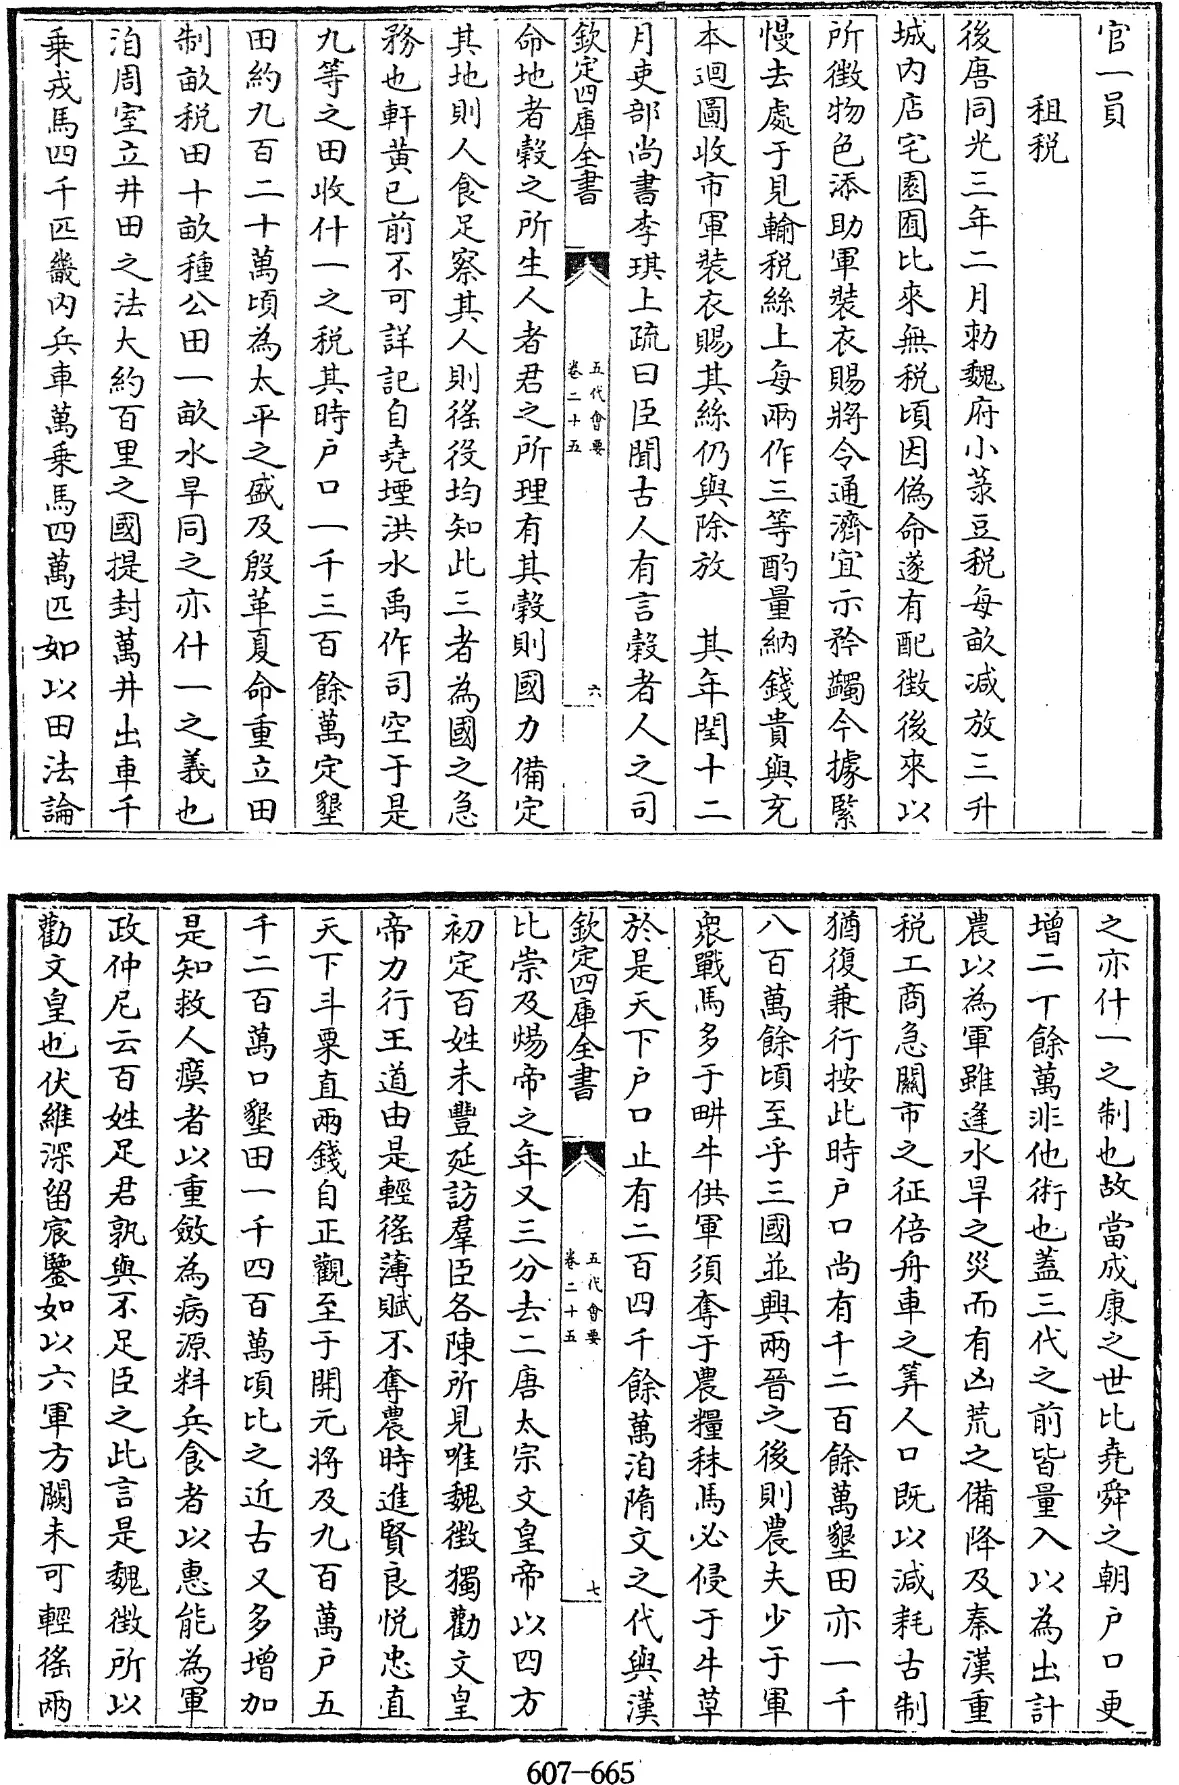 官一員
租税
後唐同光三年二月勅魏府小菉豆税每畝減放三升
城内店宅園囿比來無税頃因偽命遂有配徴後來以
所徴物色添助軍裝衣賜將令通濟宜示矜蠲今據緊
慢去處于見輸税絲上每兩作三等酌量納錢貴與充
本迴圖收市軍裝衣賜其絲仍與除放　其年閏十二
月吏部尚書李琪上疏曰臣聞古人有言穀者人之司
欽定四庫全書
五代會要
卷二十五
六
命地者穀之所生人者君之所理有其穀則國力備定
其地則人食足察其人則徭役均知此三者為國之急
務也軒黄已前不可詳記自堯堙洪水禹作司空于是
九等之田收什一之税其時户口一千三百餘萬定墾
田約九百二十萬頃為太平之盛及殷革夏命重立田
制畝税田十畝種公田一畝水旱同之亦什一之義也
洎周室立井田之法大約百里之國提封萬井出車千
乗戎馬四千匹畿内兵車萬乗馬四萬匹如以田法論
之亦什一之制也故當成康之世比堯舜之朝户口更
增二丁餘萬非他術也蓋三代之前皆量入以為出計
農以為軍雖逢水旱之災而有凶荒之備降及秦漢重
税工商急關市之征倍舟車之筭人口既以減耗古制
猶復兼行按此時户口尚有千二百餘萬墾田亦一千
八百萬餘頃至乎三國並興兩晉之後則農夫少于軍
衆戰馬多于畊牛供軍須奪于農糧秣馬必侵于牛草
於是天下户口止有二百四千餘萬洎隋文之代與漢
欽定四庫全書
五代會要
卷二十五
七
比崇及煬帝之年又三分去二唐太宗文皇帝以四方
初定百姓未豐延訪羣臣各陳所見唯魏徴獨勸文皇
帝力行王道由是輕徭薄賦不奪農時進賢良悦忠直
天下斗粟直兩錢自正觀至于開元將及九百萬户五
千二百萬口墾田一千四百萬頃比之近古又多增加
是知救人瘼者以重斂為病源料兵食者以惠能為軍
政仲尼云百姓足君孰與不足臣之此言是魏徴所以
勸文皇也伏維深留宸鑒如以六軍方闕未可輕徭兩
607-665